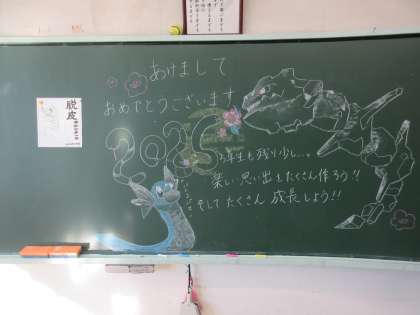 あけまして
おめでとうございます
2025
脱皮
年生も残り少し...
楽しい思い出もたくさん作ろう!!
そしてたくさん成長しよう!!